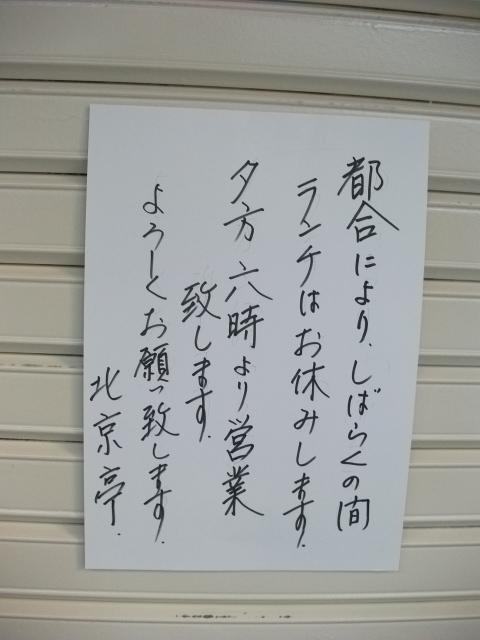 都合により、しばらくの間
ランチはお休みします。
夕方六時より営業
致します。
よろしくお願い致します。
北京亭.